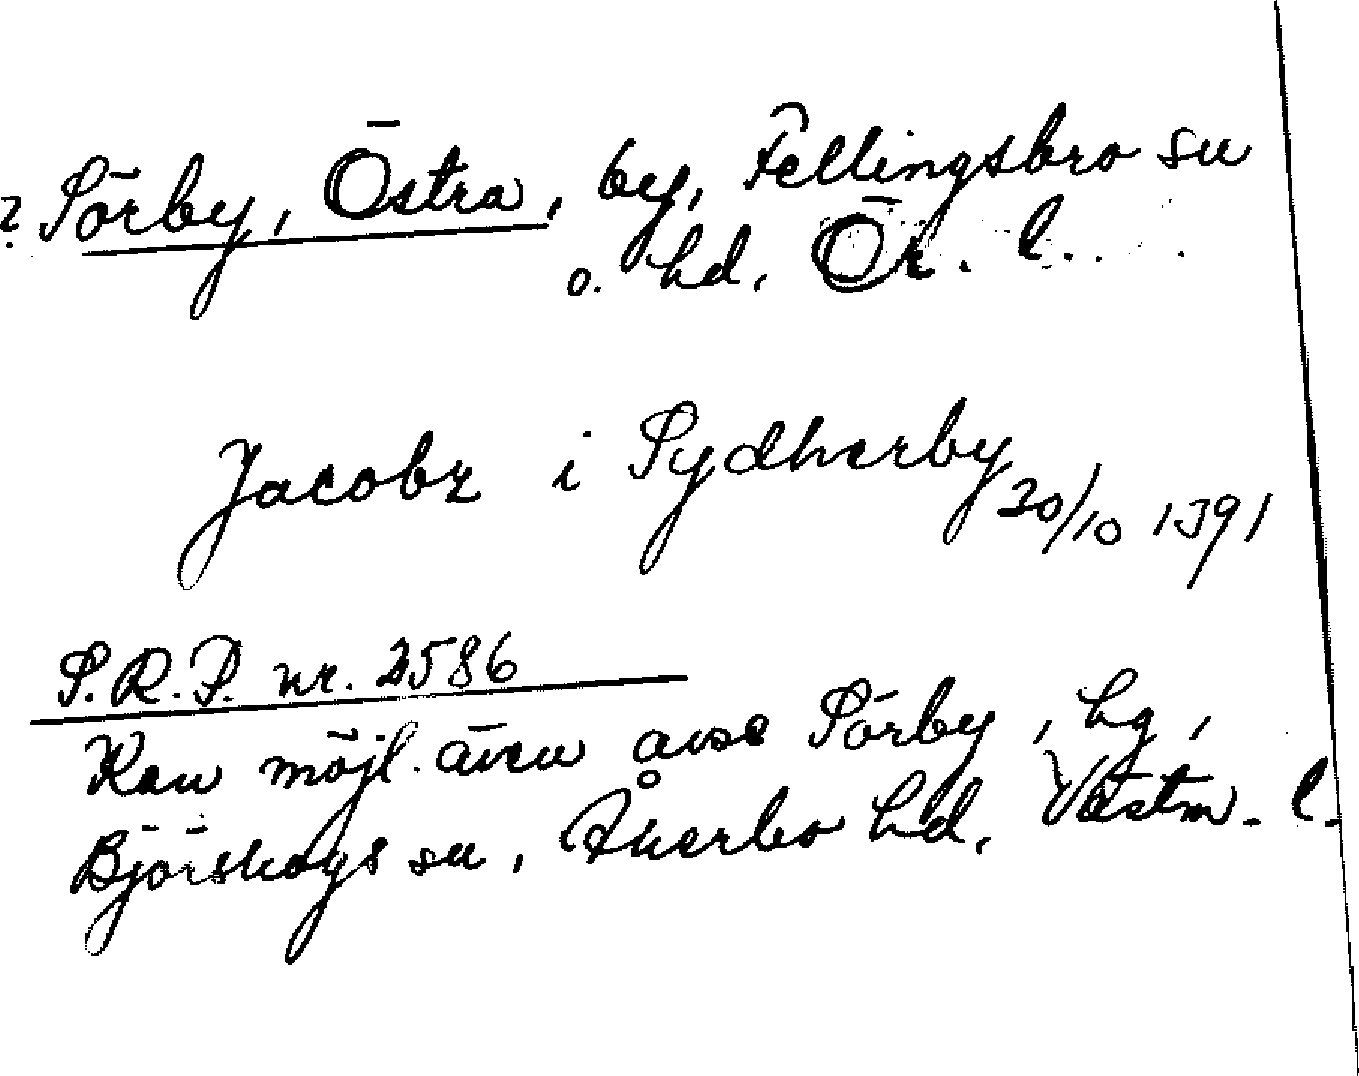 ? Sörby, Östra, by, Fellingsbro sn
o. hd, Ör. l.
Jacobz i Sydherby 20/10 1391
S.R.P. nr. 2586
Kan möjl. även avse Sörby, hg,
Björskogs sn, Åkerbo hd, Västm. l.